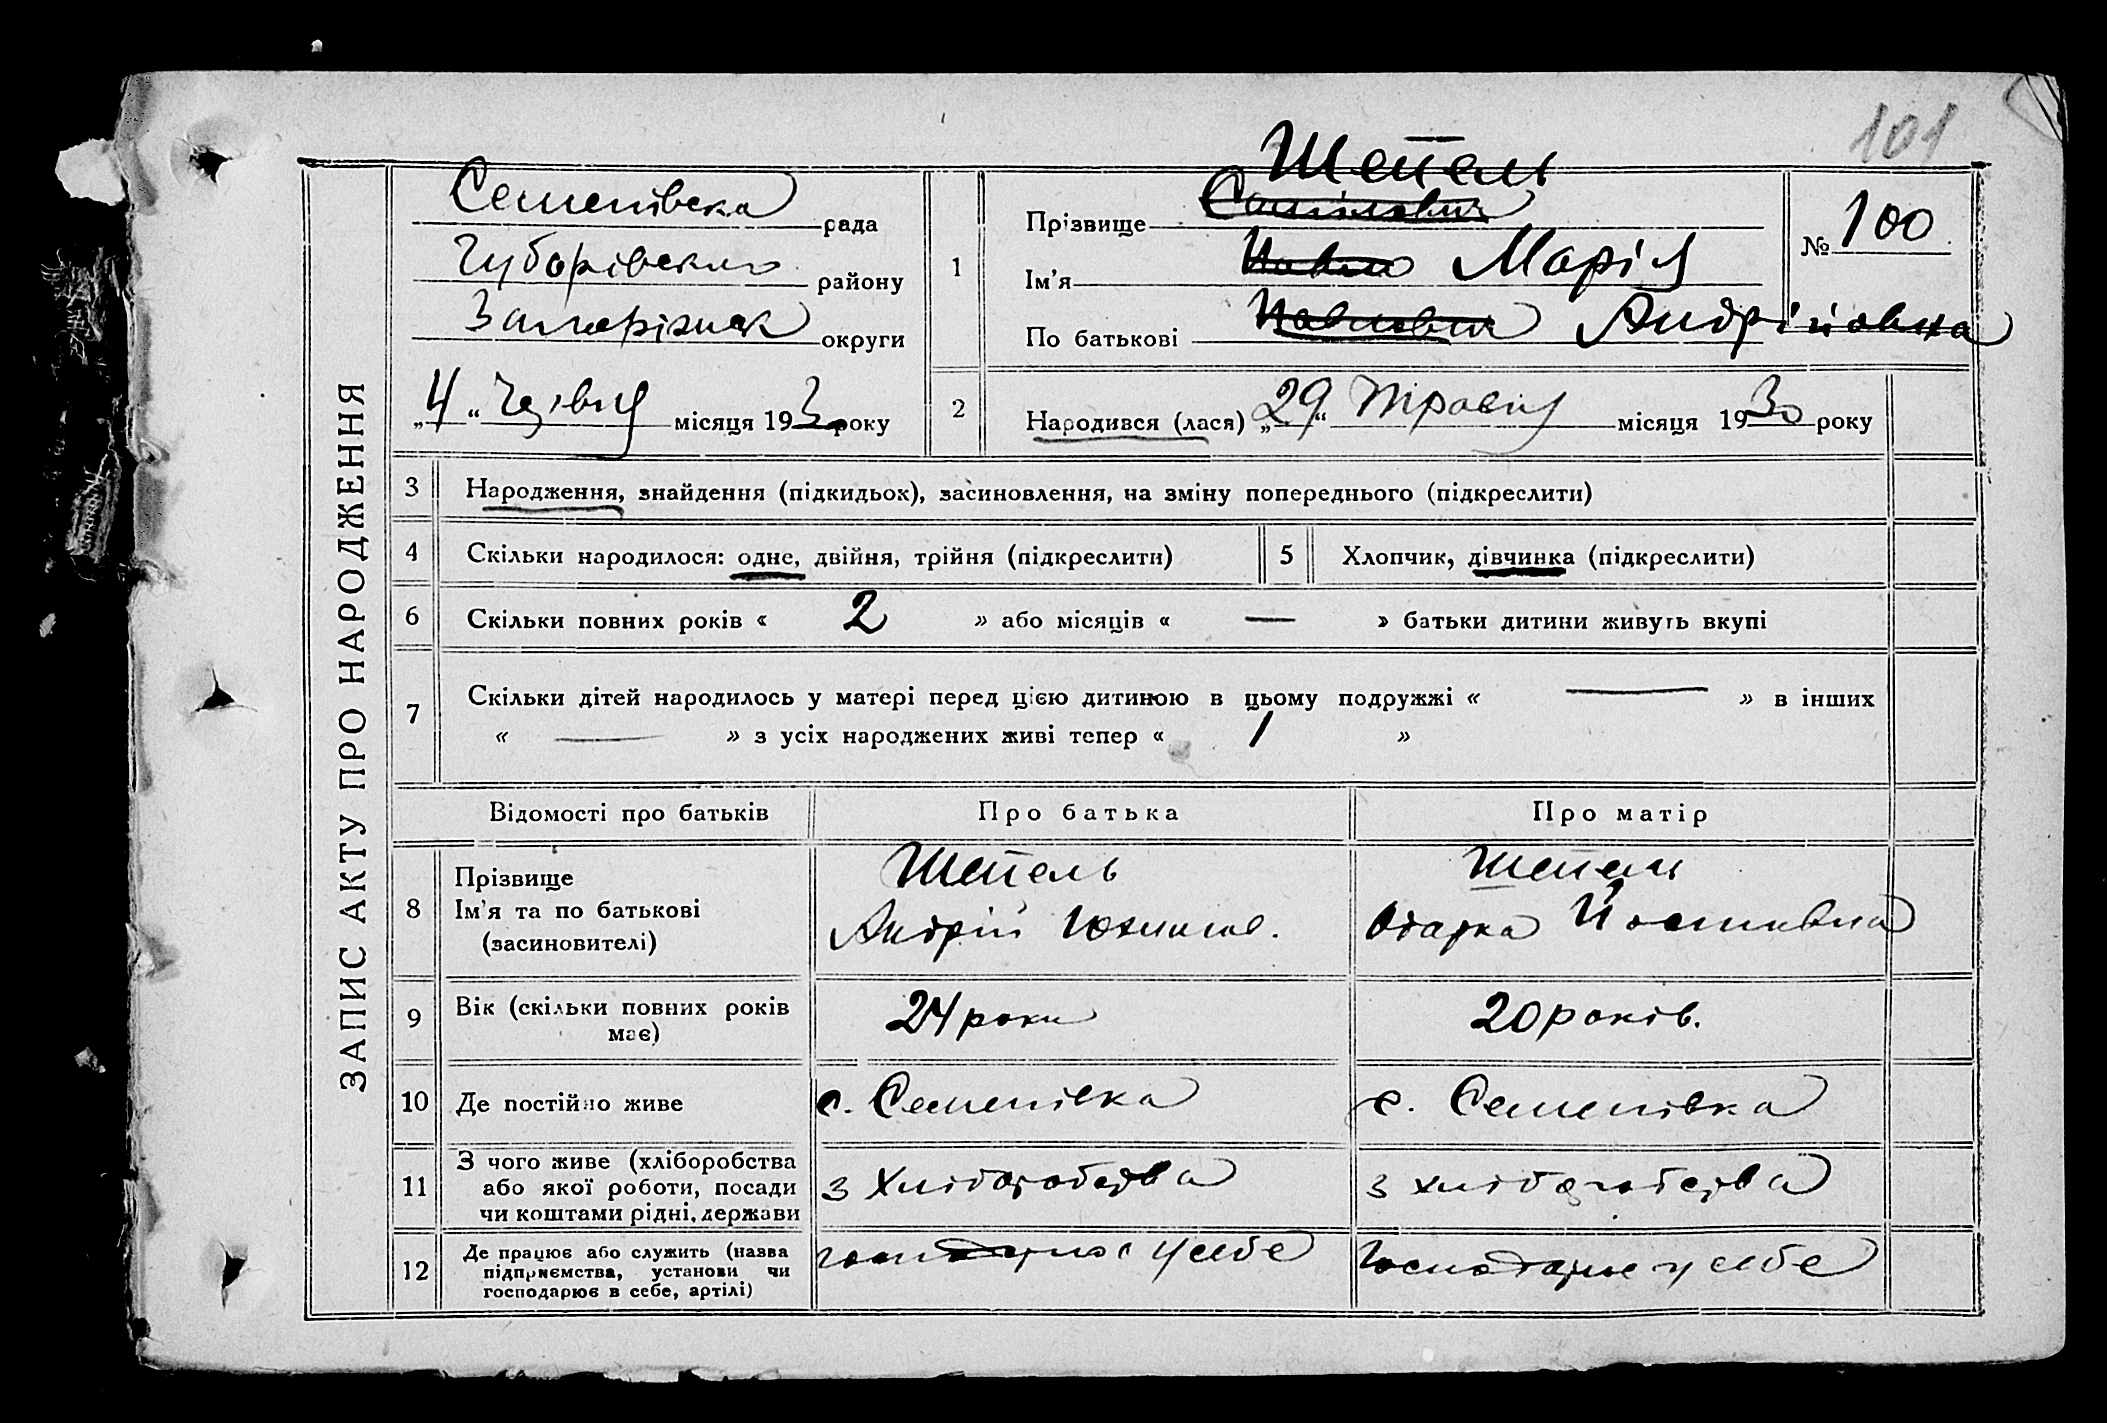 101
ЗАПИС АКТУ ПРО НАРОДЖЕННЯ
Семенівська рада
району
Запоріжж округи
„4“ Червня місяця 193 року
1
Шепель
Прізвище
Ім'я Павло Марія
По батькові Павлович Андрійовна
№ 100
2
Народився (лася) „29“ Травня місяця 1930 року
3 Народження, знайдення (підкидьок), засиновлення, на зміну попереднього (підкреслити)
4 Скільки народилося: одне, двійня, трійня (підкреслити)
5 Хлопчик, дівчинка (підкреслити)
6 Скільки повних років « 2 » або місяців « — » батьки дитини живуть вкупі
7 Скільки дітей народилось у матері перед цією дитиною в цьому подружжі « — » в інших
« — » з усіх народжених живі тепер « 1 »
Відомості про батьків Про батька Про матір
8 Прізвище Шепель Шепель
Ім'я та по батькові Андрій Одарка
(засиновителі)
9 Вік (скільки повних років має) 24 роки 20 років.
10 Де постійно живе с. Семенівка с. Семенівка
11 З чого живе (хліборобства
або якої роботи, посади з хліборобства з хліборобства
чи коштами рідні, держави
12 Де працює або служить (назва
підприємства, установи чи господарює у себе господарює у себе
господарює в себе, артілі)